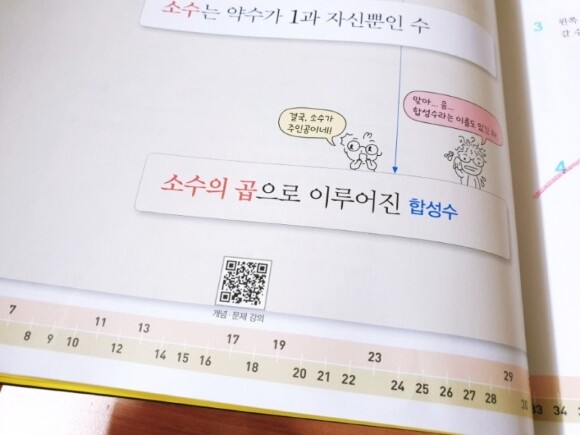 소수는 약수가 1과 자신뿐인 수
결국, 소수가
주인공이네!
맞아... 음...
합성수라는 이름도
소수의 곱으로 이루어진 합성수
개념·문제 강의
7 11 13 17 19 23 29
8 9 10 12 14 15 16 18 20 21 22 24 25 26 27 28 30 33 34
3
왼쪽
갑 수
4